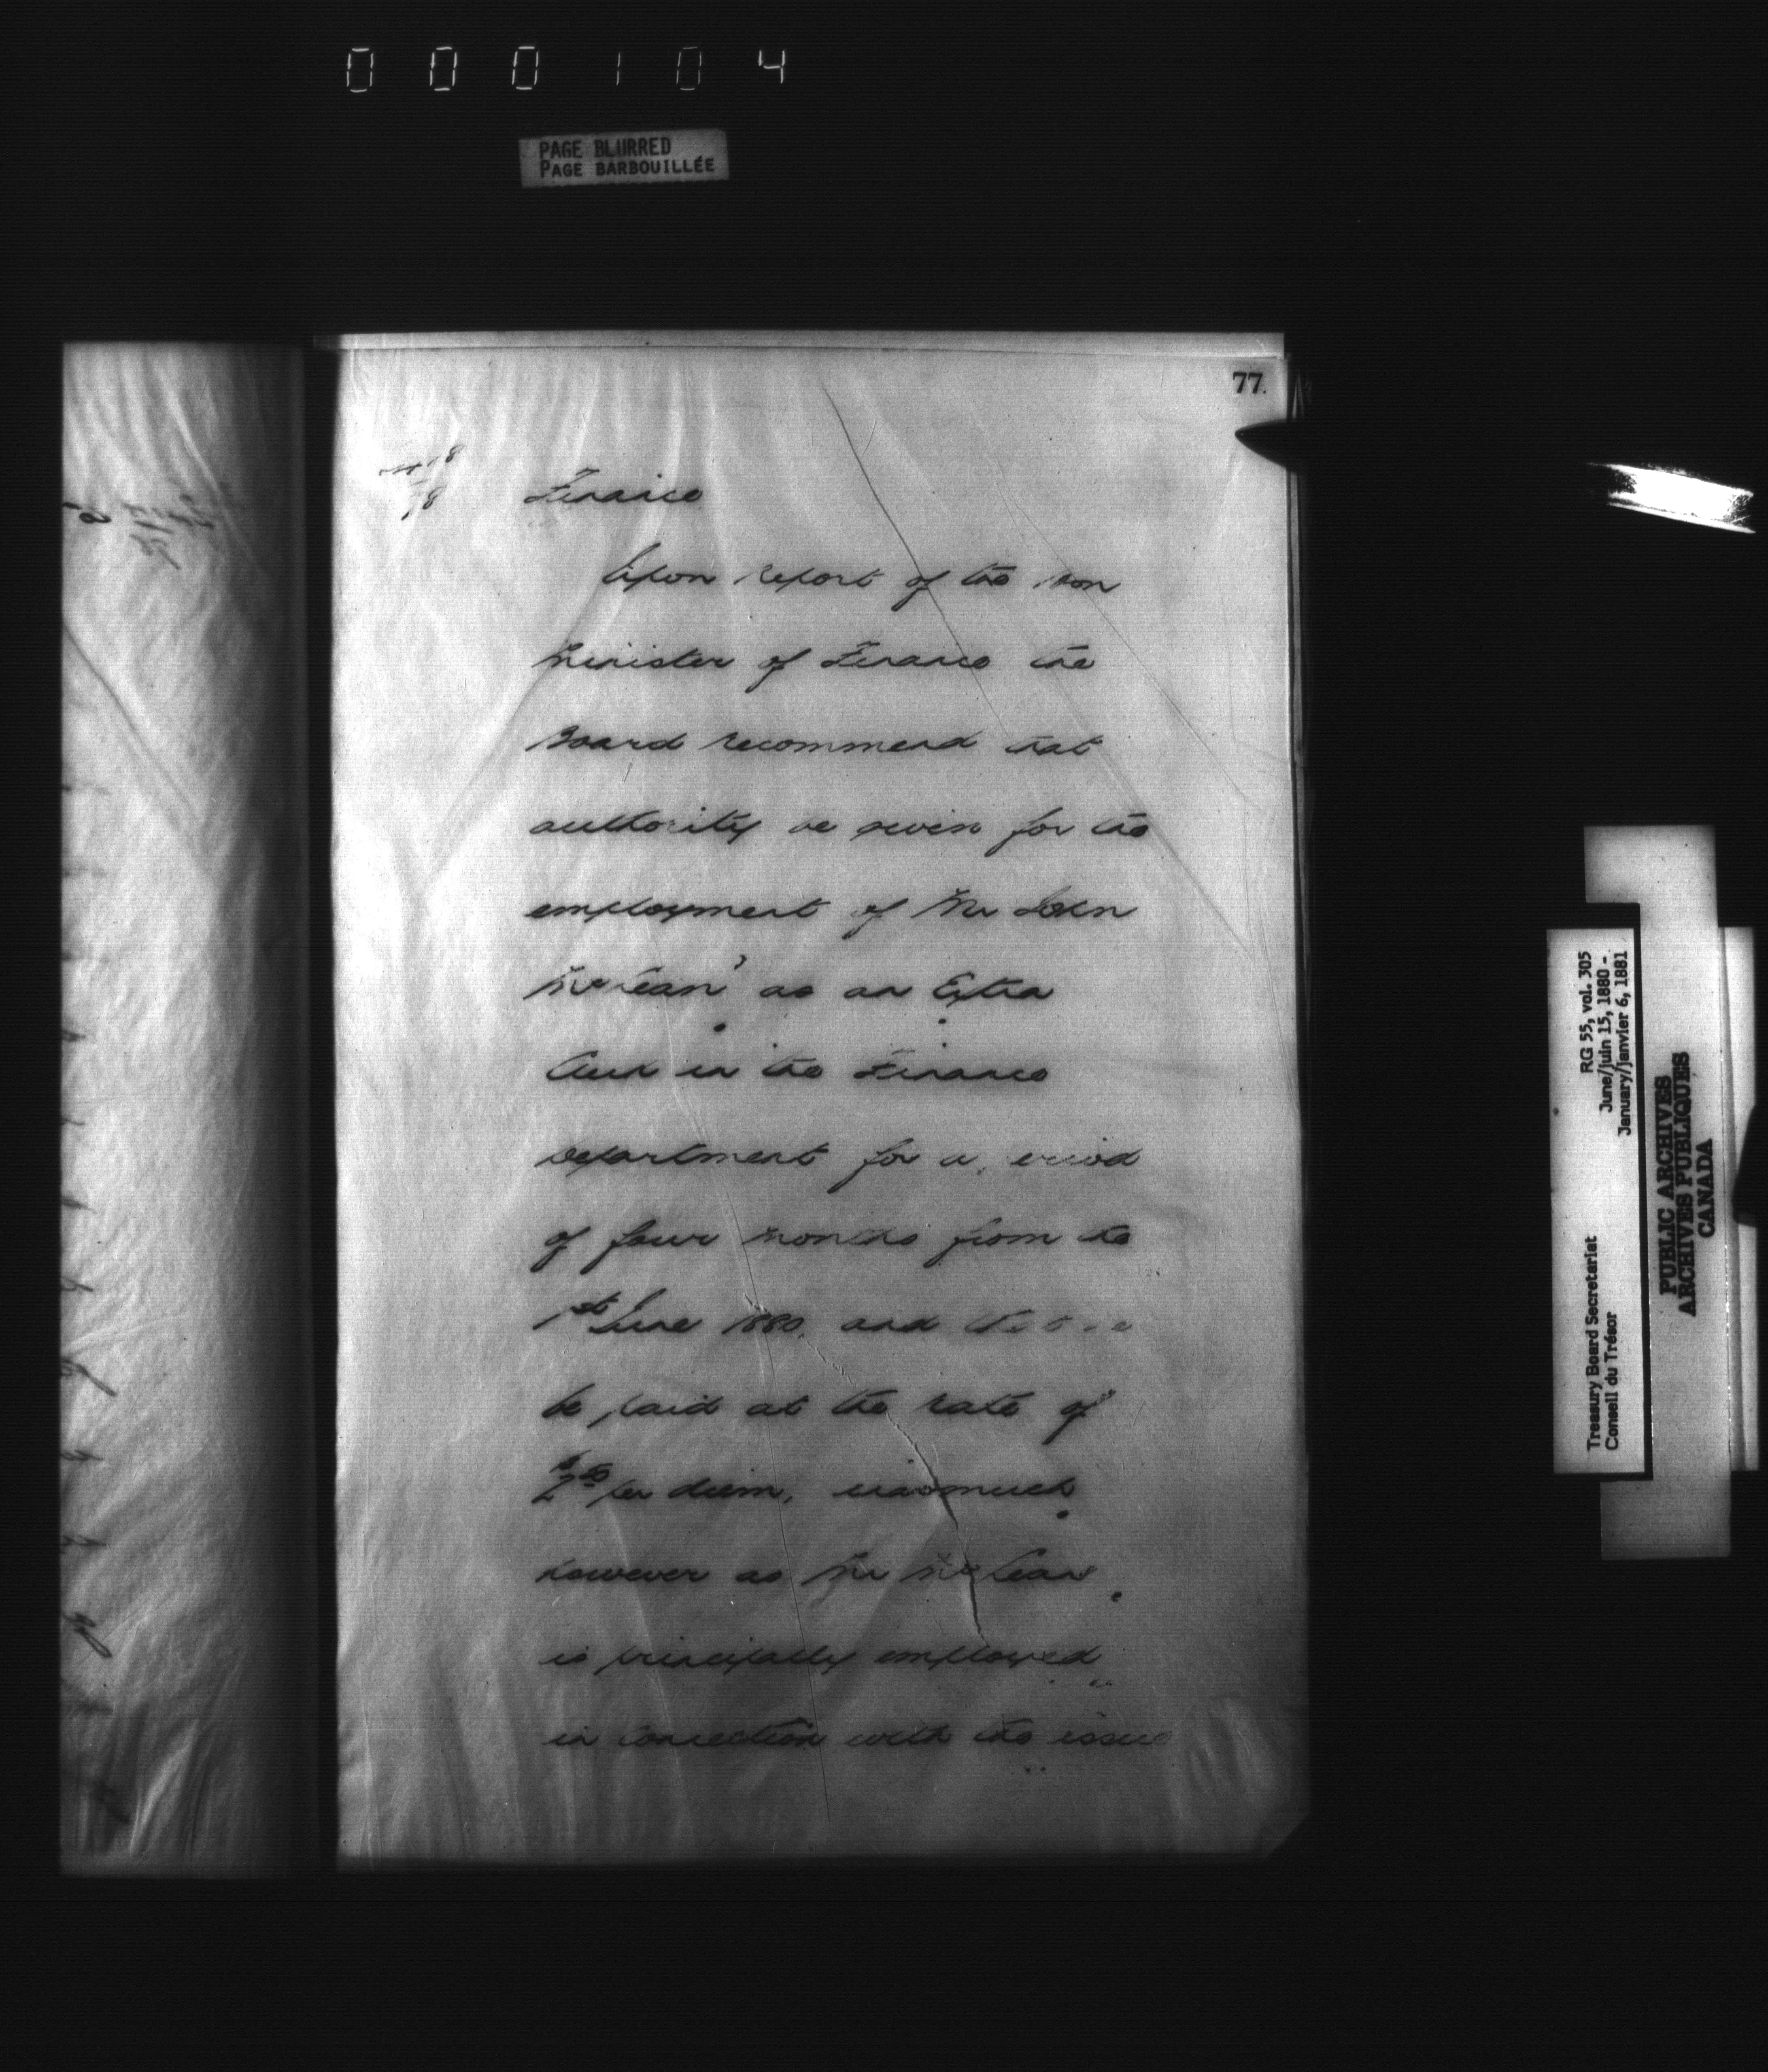 000104
PAGE BLURRED
PAGE BARBOUILLÉE
77.
Finance
Upon report of the Hon
Minister of Finance the
Board recommend that
authority be given for the
employment of Mr John
McLean as an Extra
Clerk in the Finance
Department for a period
of four months from the
1st June 1880, and that he
be paid at the rate of
$2.50 per diem, inasmuch
however as Mr McLean
is principally employed
in connection with the issue
RG 55, vol. 305
June/juin 15, 1880 -
January/janvier 6, 1881
Treasury Board Secretariat
Conseil du Trésor
PUBLIC ARCHIVES
ARCHIVES PUBLIQUES
CANADA